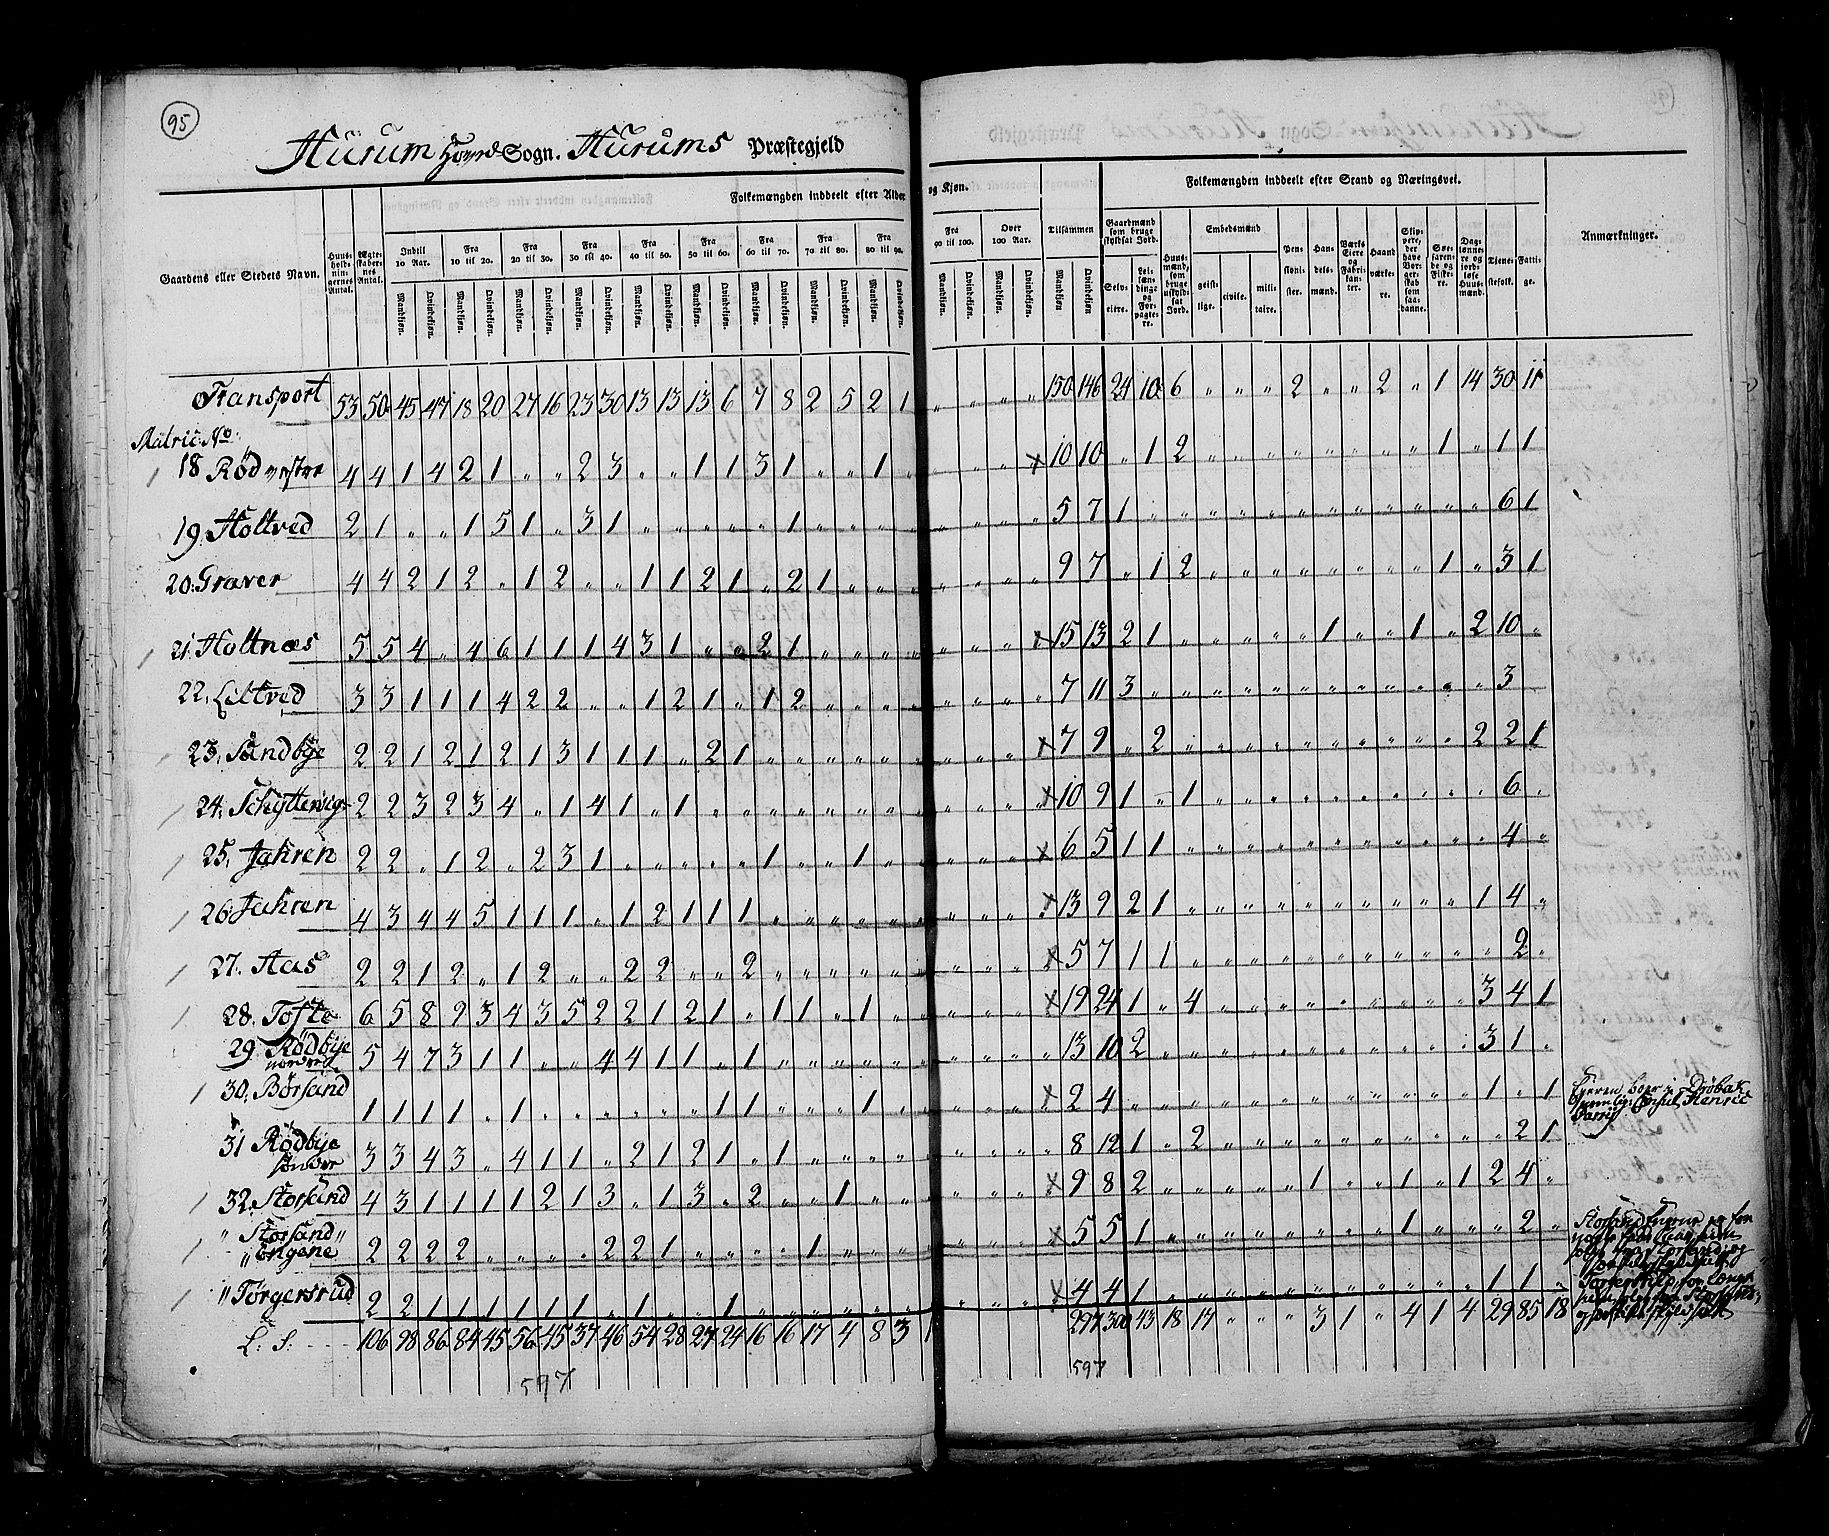 95
Hurum Hovd Sogn. Hurums Præstegjeld
Gaardens eller Stedets Navn. Huusholdningernes Antal. Ægteskabernes Antal. Folkemængden inddeelt efter Alder og Kjøn. Tilsammen Folkemængden inddeelt efter Stand og Næringsvei. Anmærkninger.
Indtil 10 Aar. Fra 10 til 20. Fra 20 til 30. Fra 30 til 40. Fra 40 til 50. Fra 50 til 60. Fra 60 til 70. Fra 70 til 80. Fra 80 til 90. Fra 90 til 100. Over 100 Aar. Gaardmænd som bruge skyldsat Jord. Huusmænd, som bruge uskyldsat Jord. Embedsmænd Pensionister. Handelsmænd. Værks Eiere og Fabrikanter. Haandværkere. Slippere, der have Borgerskab som saadanne. Søefarende og Fiskere. Daglønnere og jordløse Huusmænd. Tjenestefolk. Fattige.
Mandkjøn. Qvindekjøn. Selveiere. Leilændinge og Forpagtere. geistlige. civile. militaire.
Transport 53 50 45 47 18 20 27 16 23 30 13 13 13 6 7 8 2 5 2 1 " " " " 150 146 24 10 6 " " " 2 " " 2 " 1 14 30 11
Matric: No:
18 Rød vestre 4 4 1 4 2 1 " " 2 3 " " 1 1 3 1 " " 1 " " " " × 10 10 " 1 2 " " " " " " " " 1 " 1 1
19. Holtved 2 1 " " 1 5 1 " 3 1 " " " " " 1 " " " " " " " " 5 7 1 " " " " " " " " " " " " 6 1
20. Graver 4 4 2 1 2 " 1 2 " " 1 1 2 1 " 2 1 " " " " " " " 9 7 " 1 2 " " " " " " " " 1 " 3 1
21. Holtnæs 5 5 4 " 4 6 1 1 1 4 3 1 " " 2 1 " " " " " " " × 15 13 2 1 " " " " " 1 " " 1 " 2 10 "
22. Liltved 3 3 1 1 1 4 2 2 " " 1 2 1 " 1 2 " " " " " " " " 7 11 3 " " " " " " " " " " " " 3
23. Sandbye 2 2 1 2 1 2 1 3 1 1 1 " 2 1 " " " " " " " " " × 7 9 " 2 " " " " " " " " " " 2 2 1
24. Schyttervig 2 2 3 2 3 4 " 1 4 1 " 1 " " " " " " " " " " " × 10 9 1 " 1 " " " " " " " " " " 6 "
25. Jahren 2 2 " 1 2 " 2 3 1 " " " " " 1 " " 1 " " " " " × 6 5 1 1 " " " " " " " " " " " 4 "
26. Jahren 4 3 4 4 5 1 1 1 " 1 2 1 1 1 " " " " " " " " " × 13 9 2 1 " " " " " " " " " " 1 4 "
27. Aas 2 2 1 2 " 1 2 " " 2 2 " " 2 " " " " " " " " " × 5 7 1 1 " " " " " " " " " " " 2 "
28. Tofte 6 5 8 9 3 4 3 5 2 2 1 2 1 " 1 1 " 1 " " " " " × 19 24 1 " 4 " " " " " " " " " 3 4 1
29. Rødbye nordre 5 4 7 3 1 1 " " 4 4 1 1 " 1 " " " " " " " " " " 13 10 2 " " " " " " " " " " " 3 1 "
30. Børsand 1 1 1 1 " 1 " " " " " " 1 1 " " " 1 " " " " " × 2 4 " " " " " " " " " " " " 1 " 1 Eieren boer i Drøbak
nemlig Consul Henric
Carrs
31 Rødbye søndre 3 3 4 3 " 4 1 1 " 2 1 2 1 " 1 " " " " " " " " " 8 12 1 " 2 " " " " " " " " " " 2 1
32. Storsand 4 3 1 1 1 1 2 1 3 " 1 3 " 2 " " 1 " " " " " " × 9 8 2 " " " " " " 1 " " 1 " 1 2 4 "
" Storsand " " Engene 2 2 2 2 " " " " 2 2 1 " " " " 1 " " " " " " " × 5 5 1 " " " " " " " " " 1 " " " 2 "
" Tørgersrud 2 2 1 1 1 1 1 1 " 1 " " 1 " " " " " " " " " " × 4 4 1 " " " " " " " " " " " 1 1 "
L: S: 106 98 86 84 45 56 45 37 46 54 28 27 24 16 16 17 4 8 3 1 297 300 43 18 17 " " " 3 1 " 4 1 4 29 85 18
597 597